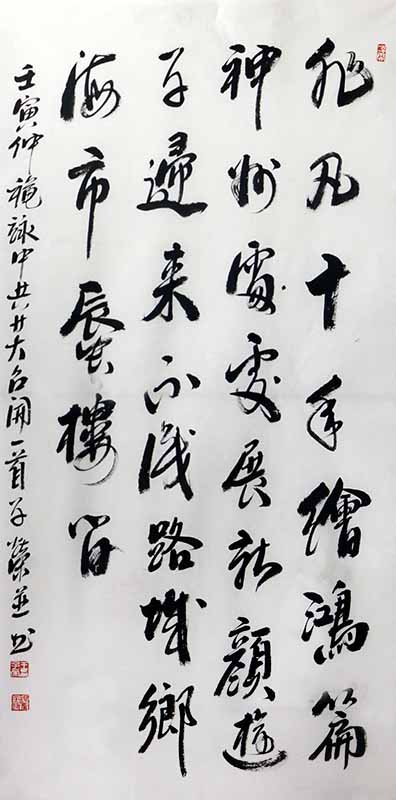 非凡十年繪鴻篇
神州處處展新顏遊
子歸來不識路城鄉
海市蜃樓間
壬寅仲穐詠中共廿大召開一首子榮並书